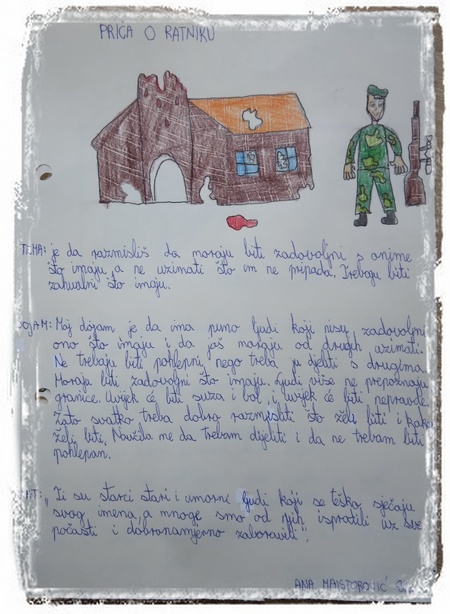 PRIČA O RATNIKU
TEMA: je da razmisliš da moraju biti zadovoljni s onime
što imaju, a ne uzimati što im ne pripada. Trebaju biti
zahvalni što imaju.
DOJAM: Moj dojam je da ima puno ljudi koji nisu zadovoljni
ono što imaju i da još moraju od drugih uzimati.
Ne trebaju biti pohlepni, nego treba ju djeliti s drugima.
Moraju biti zadovoljni što imaju. Ljudi više ne prepoznaju
granice. Uvijek će biti suza i bol i uvijek će biti nepravde.
Zato svatko treba dobro razmisliti što želi biti i kako
želi biti. Naučila me da trebam dijeliti i da ne trebam biti
pohlepan.
"Ti su starci stari i umorni ljudi koji se teško sjećaju
svog imena, a mnoge smo od njih ispratili uz sve
počasti i dobronamjerno zaboravili".
ANA MAISTOROVIĆ